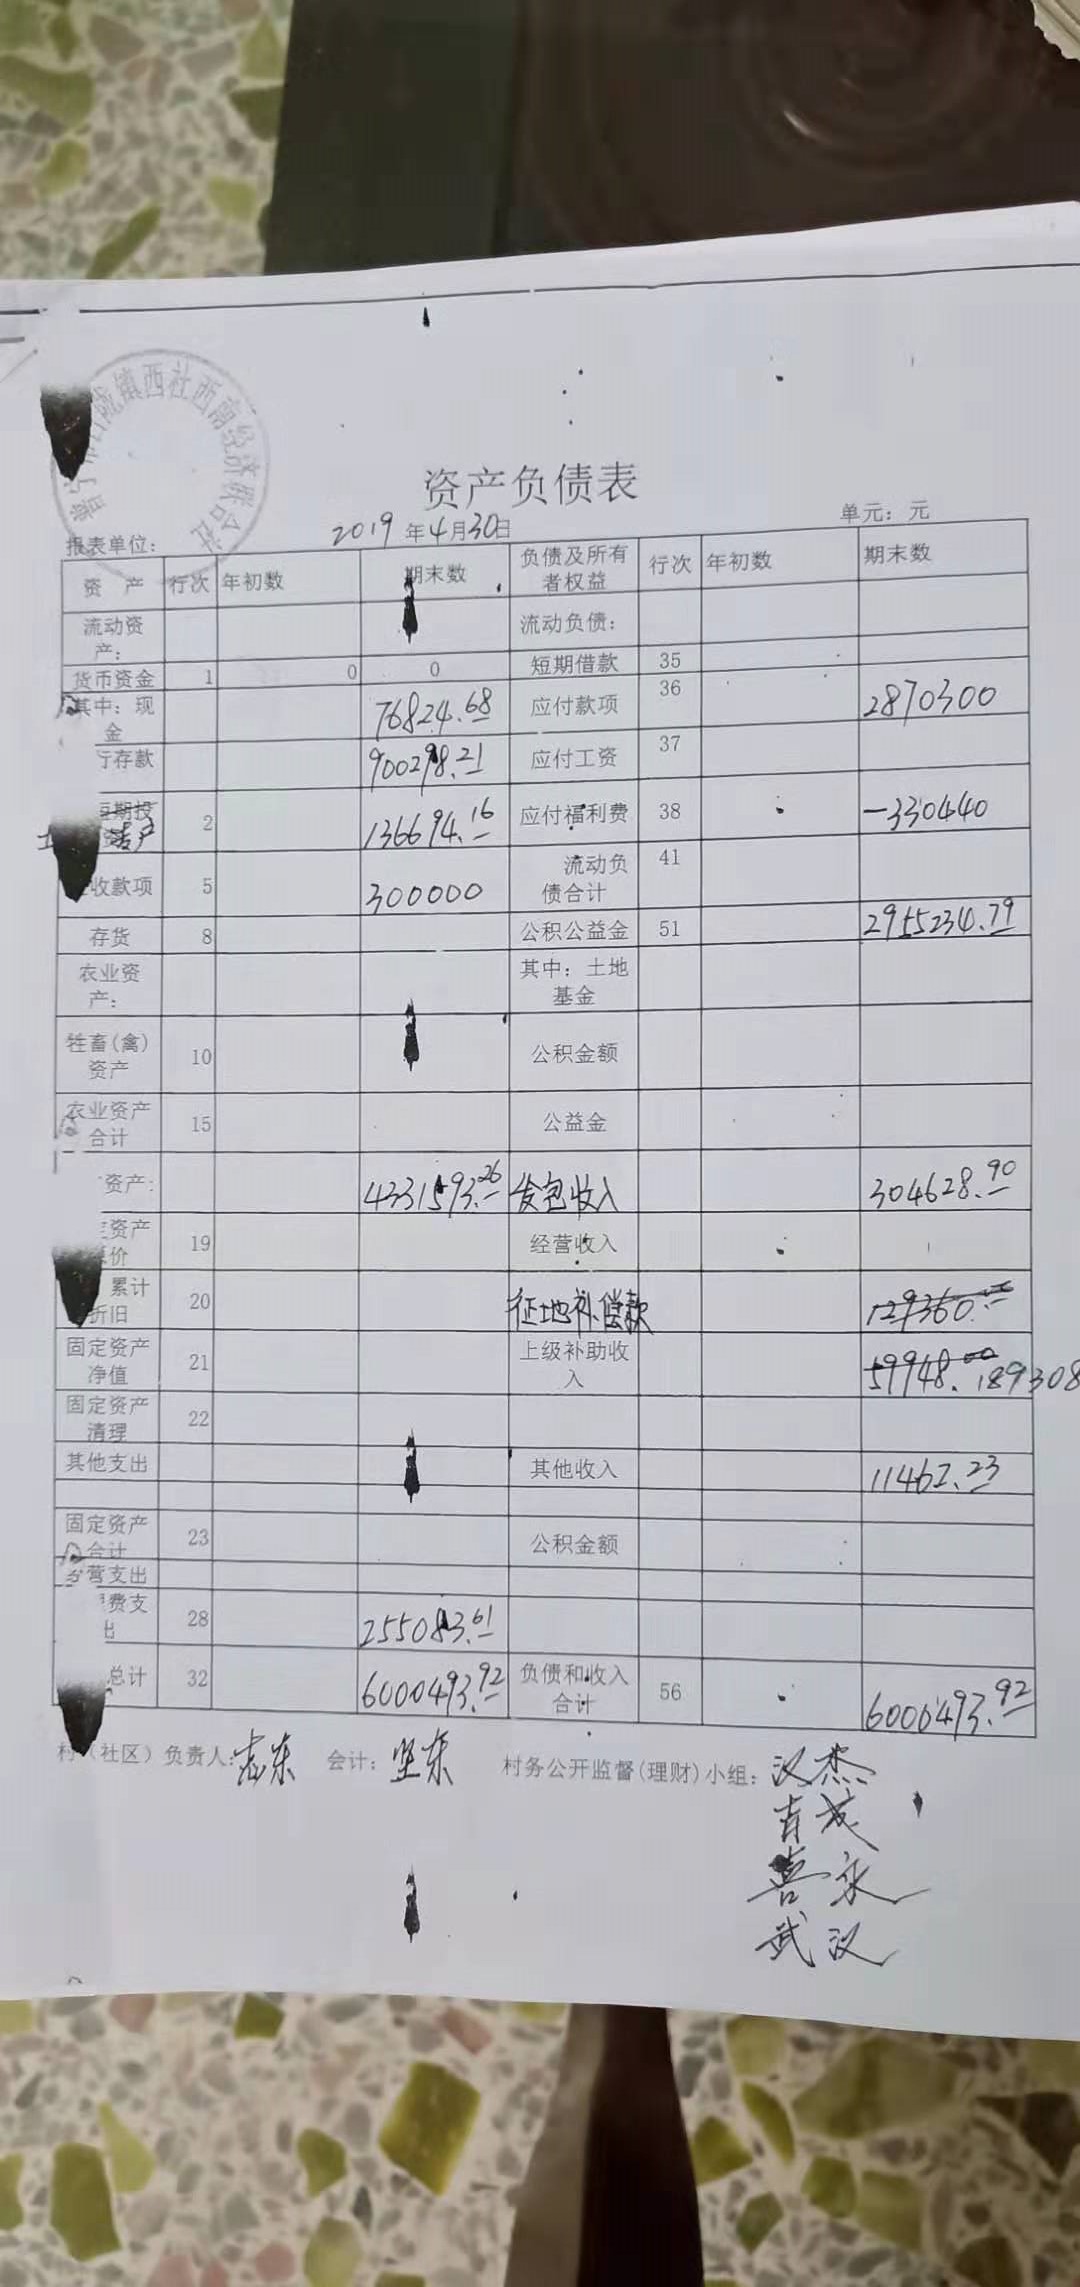 镇西社西南经济联合社
资产负债表
2019年4月30日
单元：元
报表单位：
资 产 行次 年初数 期末数 负债及所有者权益 行次 年初数 期末数
流动资产： 流动负债：
货币资金 1 0 0 短期借款 35
其中：现金 76824.68 应付款项 36 2870300
行存款 900298.21 应付工资 37
短期投资 2 136694.16 应付福利费 38 -330440
收款项 5 300000 流动负债合计 41
存货 8 公积公益金 51 2955234.79
农业资产： 其中：土地基金
牲畜(禽)资产 10 公积金额
农业资产合计 15 公益金
资产： 4331593.26 发包收入 304628.90
资产价 19 经营收入
累计折旧 20 征地补偿款 129360.00
固定资产净值 21 上级补助收入 59948.00 189308
固定资产清理 22
其他支出 其他收入 11462.23
固定资产合计 23 公积金额
营支出
费支出 28 255083.61
总计 32 6000493.92 负债和收入合计 56 6000493.92
村（社区）负责人：志东 会计：坚东 村务公开监督(理财)小组：汉杰
吉茂
喜永
武汉